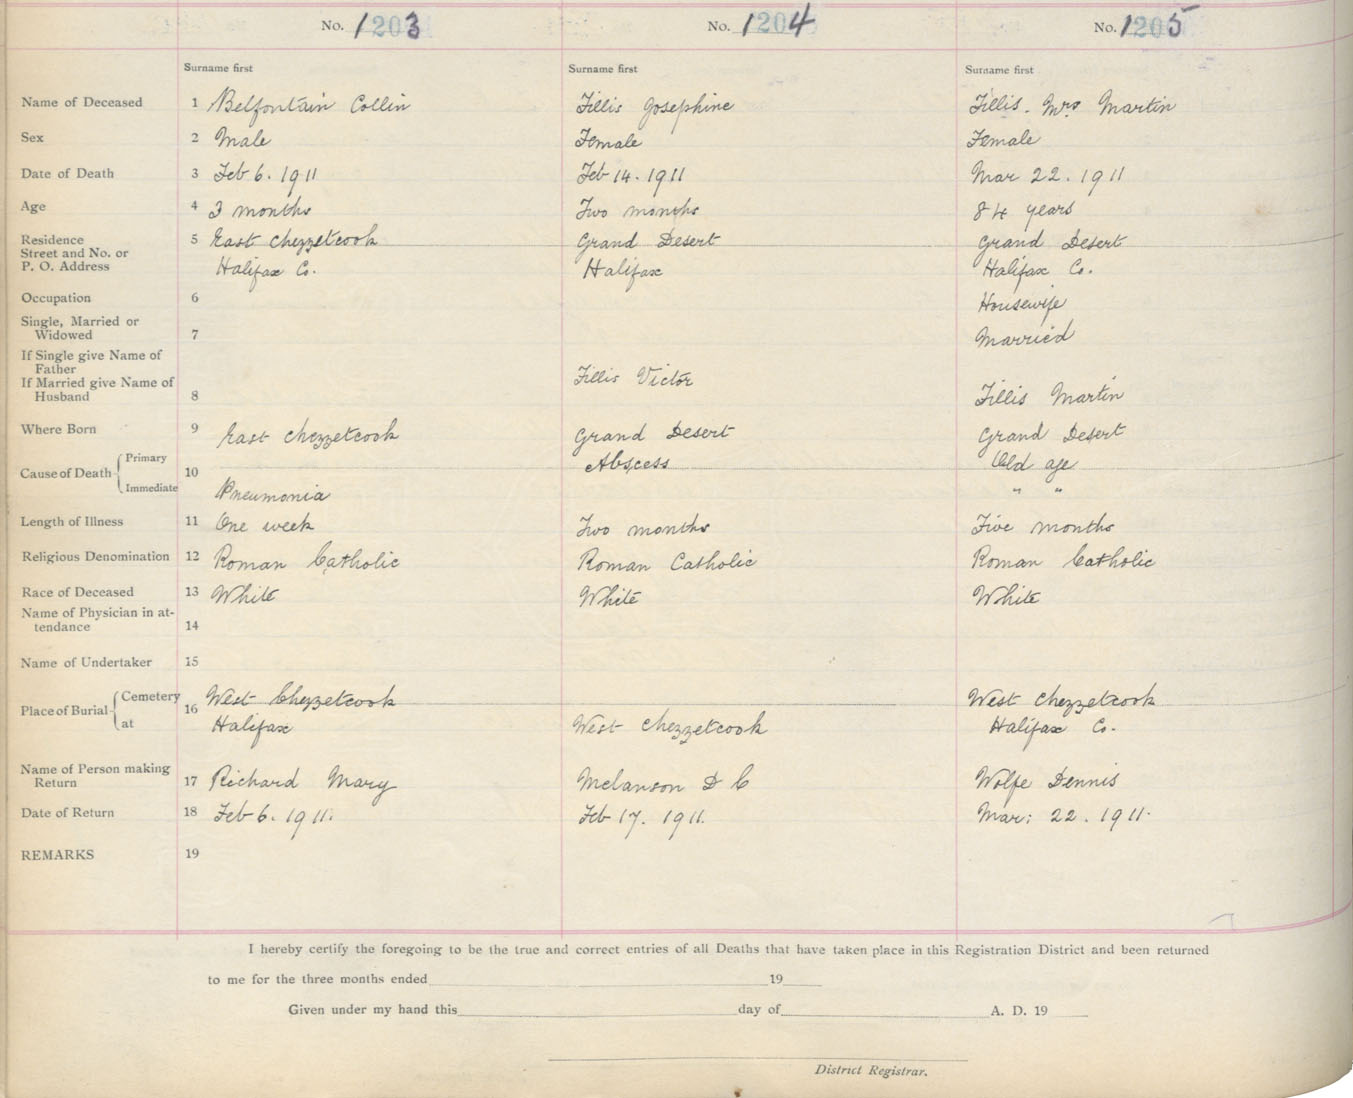 No. 1203 No. 1204 No. 1205
Surname first Surname first Surname first
Name of Deceased 1 Belfontain Collin Fillis Josephine Fillis. Mrs Martin
Sex 2 Male Female Female
Date of Death 3 Feb 6. 1911 Feb 14. 1911 Mar 22. 1911
Age 4 3 months Two months 84 years
Residence 5 East Chezzetcook Grand Desert Grand Desert
Street and No. or
P. O. Address Halifax Co. Halifax Halifax Co.
Occupation 6 Housewife
Single, Married or
Widowed 7 Married
If Single give Name of
Father
If Married give Name of Fillis Victor
Husband 8 Fillis Martin
Where Born 9 East Chezzetcook Grand Desert Grand Desert
Cause of Death Primary 10 Abscess Old age
Immediate Pneumonia " "
Length of Illness 11 One week Two months Five months
Religious Denomination 12 Roman Catholic Roman Catholic Roman Catholic
Race of Deceased 13 White White White
Name of Physician in at-
tendance 14
Name of Undertaker 15
Place of Burial Cemetery 16 West Chezzetcook West Chezzetcook
at Halifax West Chezzetcook Halifax Co.
Name of Person making
Return 17 Richard Mary Melanson D C Wolfe Dennis
Date of Return 18 Feb 6. 1911. Feb 17. 1911. Mar: 22. 1911.
REMARKS 19
I hereby certify the foregoing to be the true and correct entries of all Deaths that have taken place in this Registration District and been returned
to me for the three months ended 19
Given under my hand this day of A. D. 19
District Registrar.